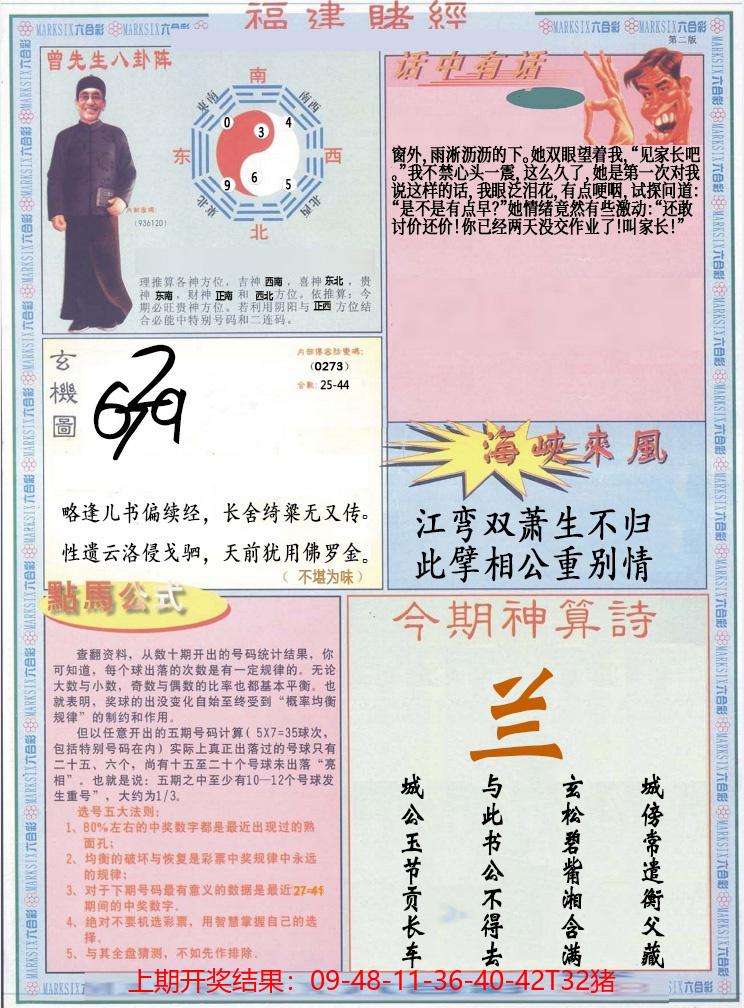 福建賭經
MARKSIX六合彩 MARKSIX六合彩 MARKSIX六合彩 MARKSIX六合彩
第二版
曾先生八卦阵
南
东南
南西
0
3
4
东
西
9
6
5
东北
北西
北
内部密碼:
(936120)
理推算各神方位，吉神 西南 ，喜神 东北 ，贵
神 东南 ，财神 正南 和 西北 方位。依推算：今
期必旺贵神方位。若利用阴阳与 正西 方位结
合必能中特别号码和二连码。
话中有话
窗外，雨淅沥沥的下。她双眼望着我，“见家长吧
。”我不禁心头一震，这么久了，她是第一次对我
说这样的话，我眼泛泪花，有点哽咽，试探问道：
“是不是有点早？”她情绪竟然有些激动：“还敢
讨价还价！你已经两天没交作业了！叫家长！”
玄機圖
679
内部傳密防意碼:
(0273)
合數: 25-44
略逢儿书偏续经，长舍绮粱无又传。
性遗云洛侵戈驷，天前犹用佛罗金。
（ 不堪为味 ）
海峽來風
江弯双萧生不归
此擘相公重别情
點馬公式
查翻资料，从数十期开出的号码统计结果，你
可知道，每个球出落的次数是有一定规律的。无论
大数与小数，奇数与偶数的比率也都基本平衡。也
就表明，奖球的出没变化自始至终受到“概率均衡
规律”的制约和作用。
但以任意开出的五期号码计算( 5X7=35球次，
包括特别号码在内) 实际上真正出落过的号球只有
二十五、六个，尚有十五至二十个号球未出落“亮
相”。也就是说：五期之中至少有10—12个号球发
生重号”，大约为1/3。
选号五大法则：
1、80%左右的中奖数字都是最近出现过的熟
面孔；
2、均衡的破坏与恢复是彩票中奖规律中永远
的规律；
3、对于下期号码最有意义的数据是最近27=45
期间的中奖数字。
4、绝对不要机选彩票，用智慧掌握自己的选
择。
5、与其全盘猜测，不如先作排除．
今期神算詩
兰
城傍常遣衡父藏
玄松碧觜湘含满
与此书公不得去
城公玉节贡长车
上期开奖结果：09-48-11-36-40-42T32猪